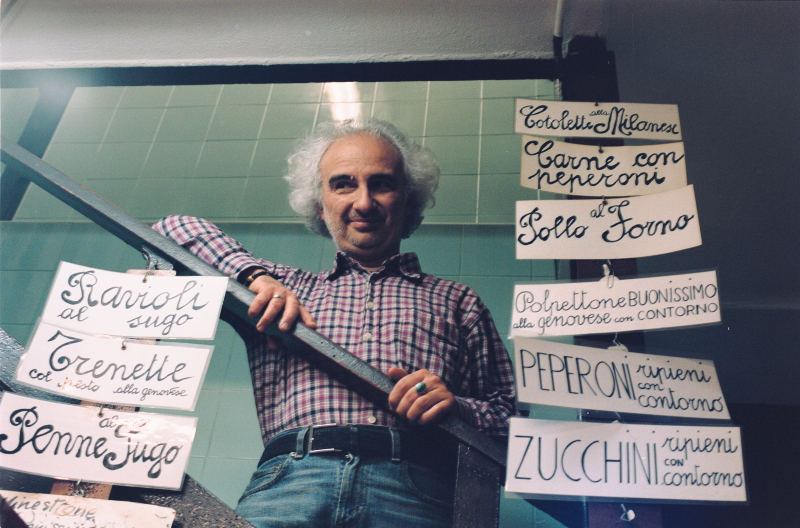 Ravioli
al sugo
Trenette
col pesto alla genovese
Penne al sugo
Minestrone
Cotoletta alla Milanese
Carne con
peperoni
Pollo al Forno
Polpettone BUONISSIMO
alla genovese con CONTORNO
PEPERONI ripieni
con
contorno
ZUCCHINI ripieni
con
contorno